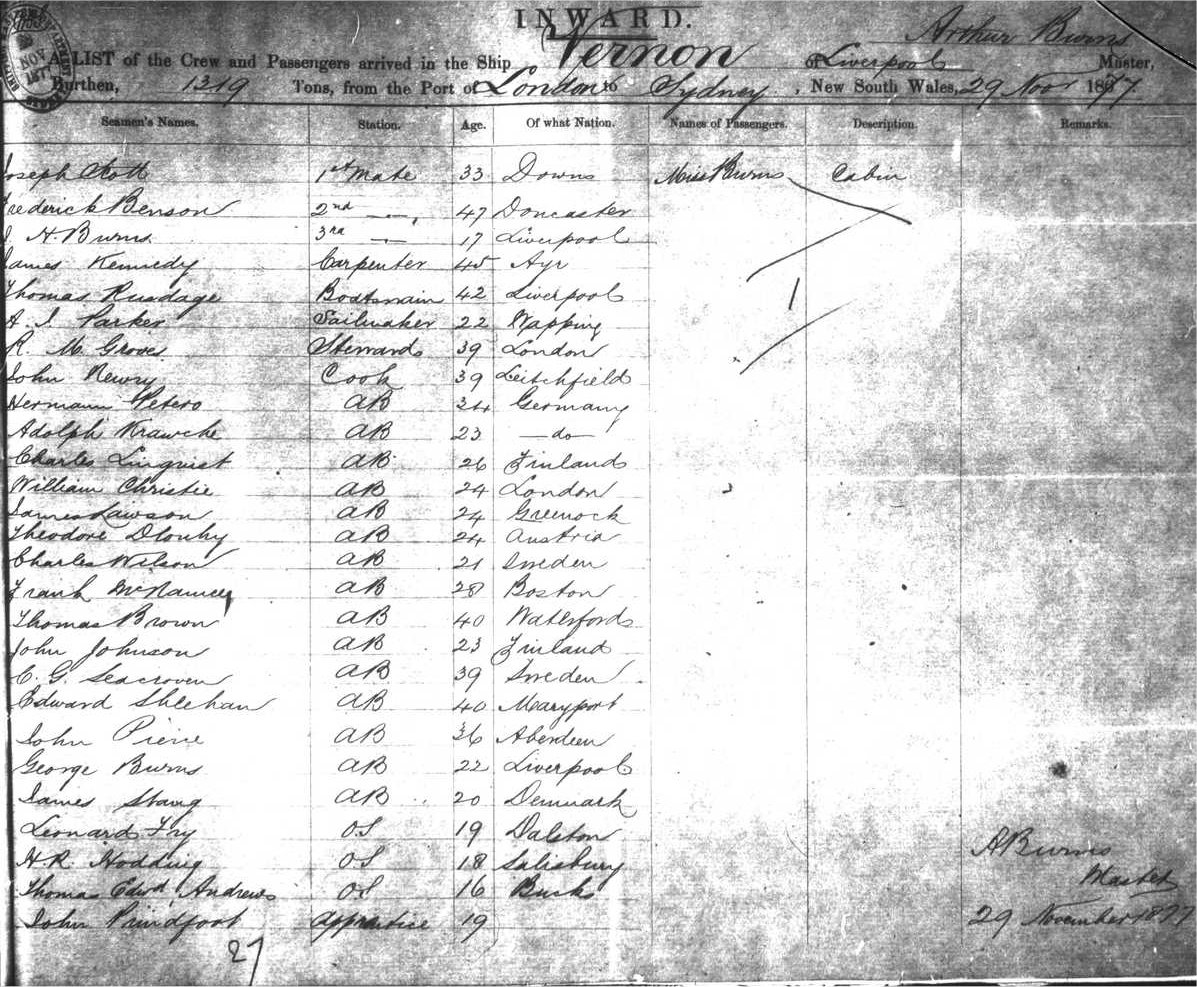 INWARD.
Arthur Burns
A LIST of the Crew and Passengers arrived in the Ship Vernon of Liverpool Master,
Burthen, 1319 Tons, from the Port of London to Sydney, New South Wales, 29 Novr 1877.
Seamen's Names. Station. Age. Of what Nation. Names of Passengers. Description. Remarks.
Joseph Scott 1st Mate 33 Downs Miss Burns Cabin
Frederick Benson 2nd — 47 Doncaster
H. Burns 3rd — 17 Liverpool
James Kennedy Carpenter 45 Ayr
Thomas Rusdage Boatswain 42 Liverpool
A. J. Parker Sailmaker 22 Wapping
R. M. Groves Steward 39 London
John Newry Cook 39 Leitchfield
Hermann Peters AB 34 Germany
Adolph Krawcke AB 23 —do—
Charles Linqvist AB 26 Finland
William Christie AB 24 London
James Lawson AB 24 Greenock
Theodore Dlouhy AB 24 Austria
Charles Wilson AB 21 Sweden
Frank McNamee AB 28 Boston
Thomas Brown AB 40 Waterford
John Johnson AB 23 Finland
C. G. Seacroven AB 39 Sweden
Edward Sheehan AB 40 Maryport
John Pirie AB 36 Aberdeen
George Burns AB 22 Liverpool
James Stang AB 20 Denmark
Leonard Fry OS 19 Dalston
H. R. Hodding OS 18 Salisbury
Thomas Edwd Andrews OS 16 Bucks
John Prindfoot Apprentice 19
27
A Burns
Master
29 November 1877